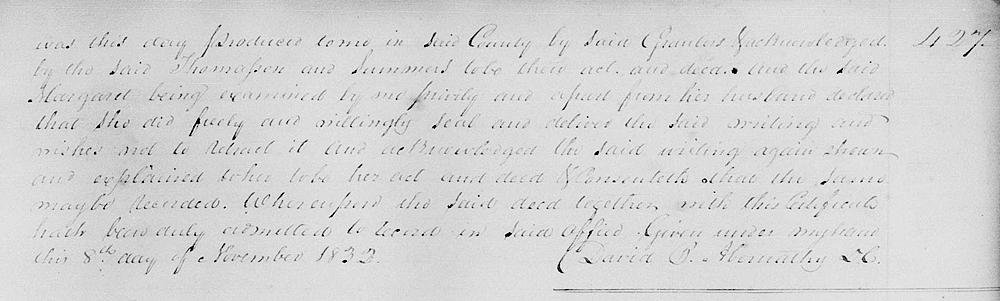 was this day produced to me in said County by said Grantors & acknowledged 427
by the said Thomasson and Summers to be their act and deed. And the said
Margaret being examined by me privily and apart from her husband declared
that she did freely and willingly seal and deliver the said writing and
wishes not to retract it and acknowledged the said writing again shewn
and explained to her to be her act and deed & consenteth that the same
may be recorded. Whereupon the said deed together with this Certificate
hath been duly admitted to record in said office. Given under my hand
this 8th day of November 1832. David Abernathy